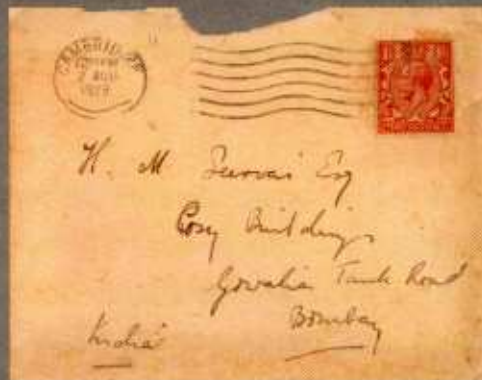 CAMBRIDGE
2 AUG
H. M Seervai Esq
Cosy Buildings
Gowalia Tank Road
Bombay
India